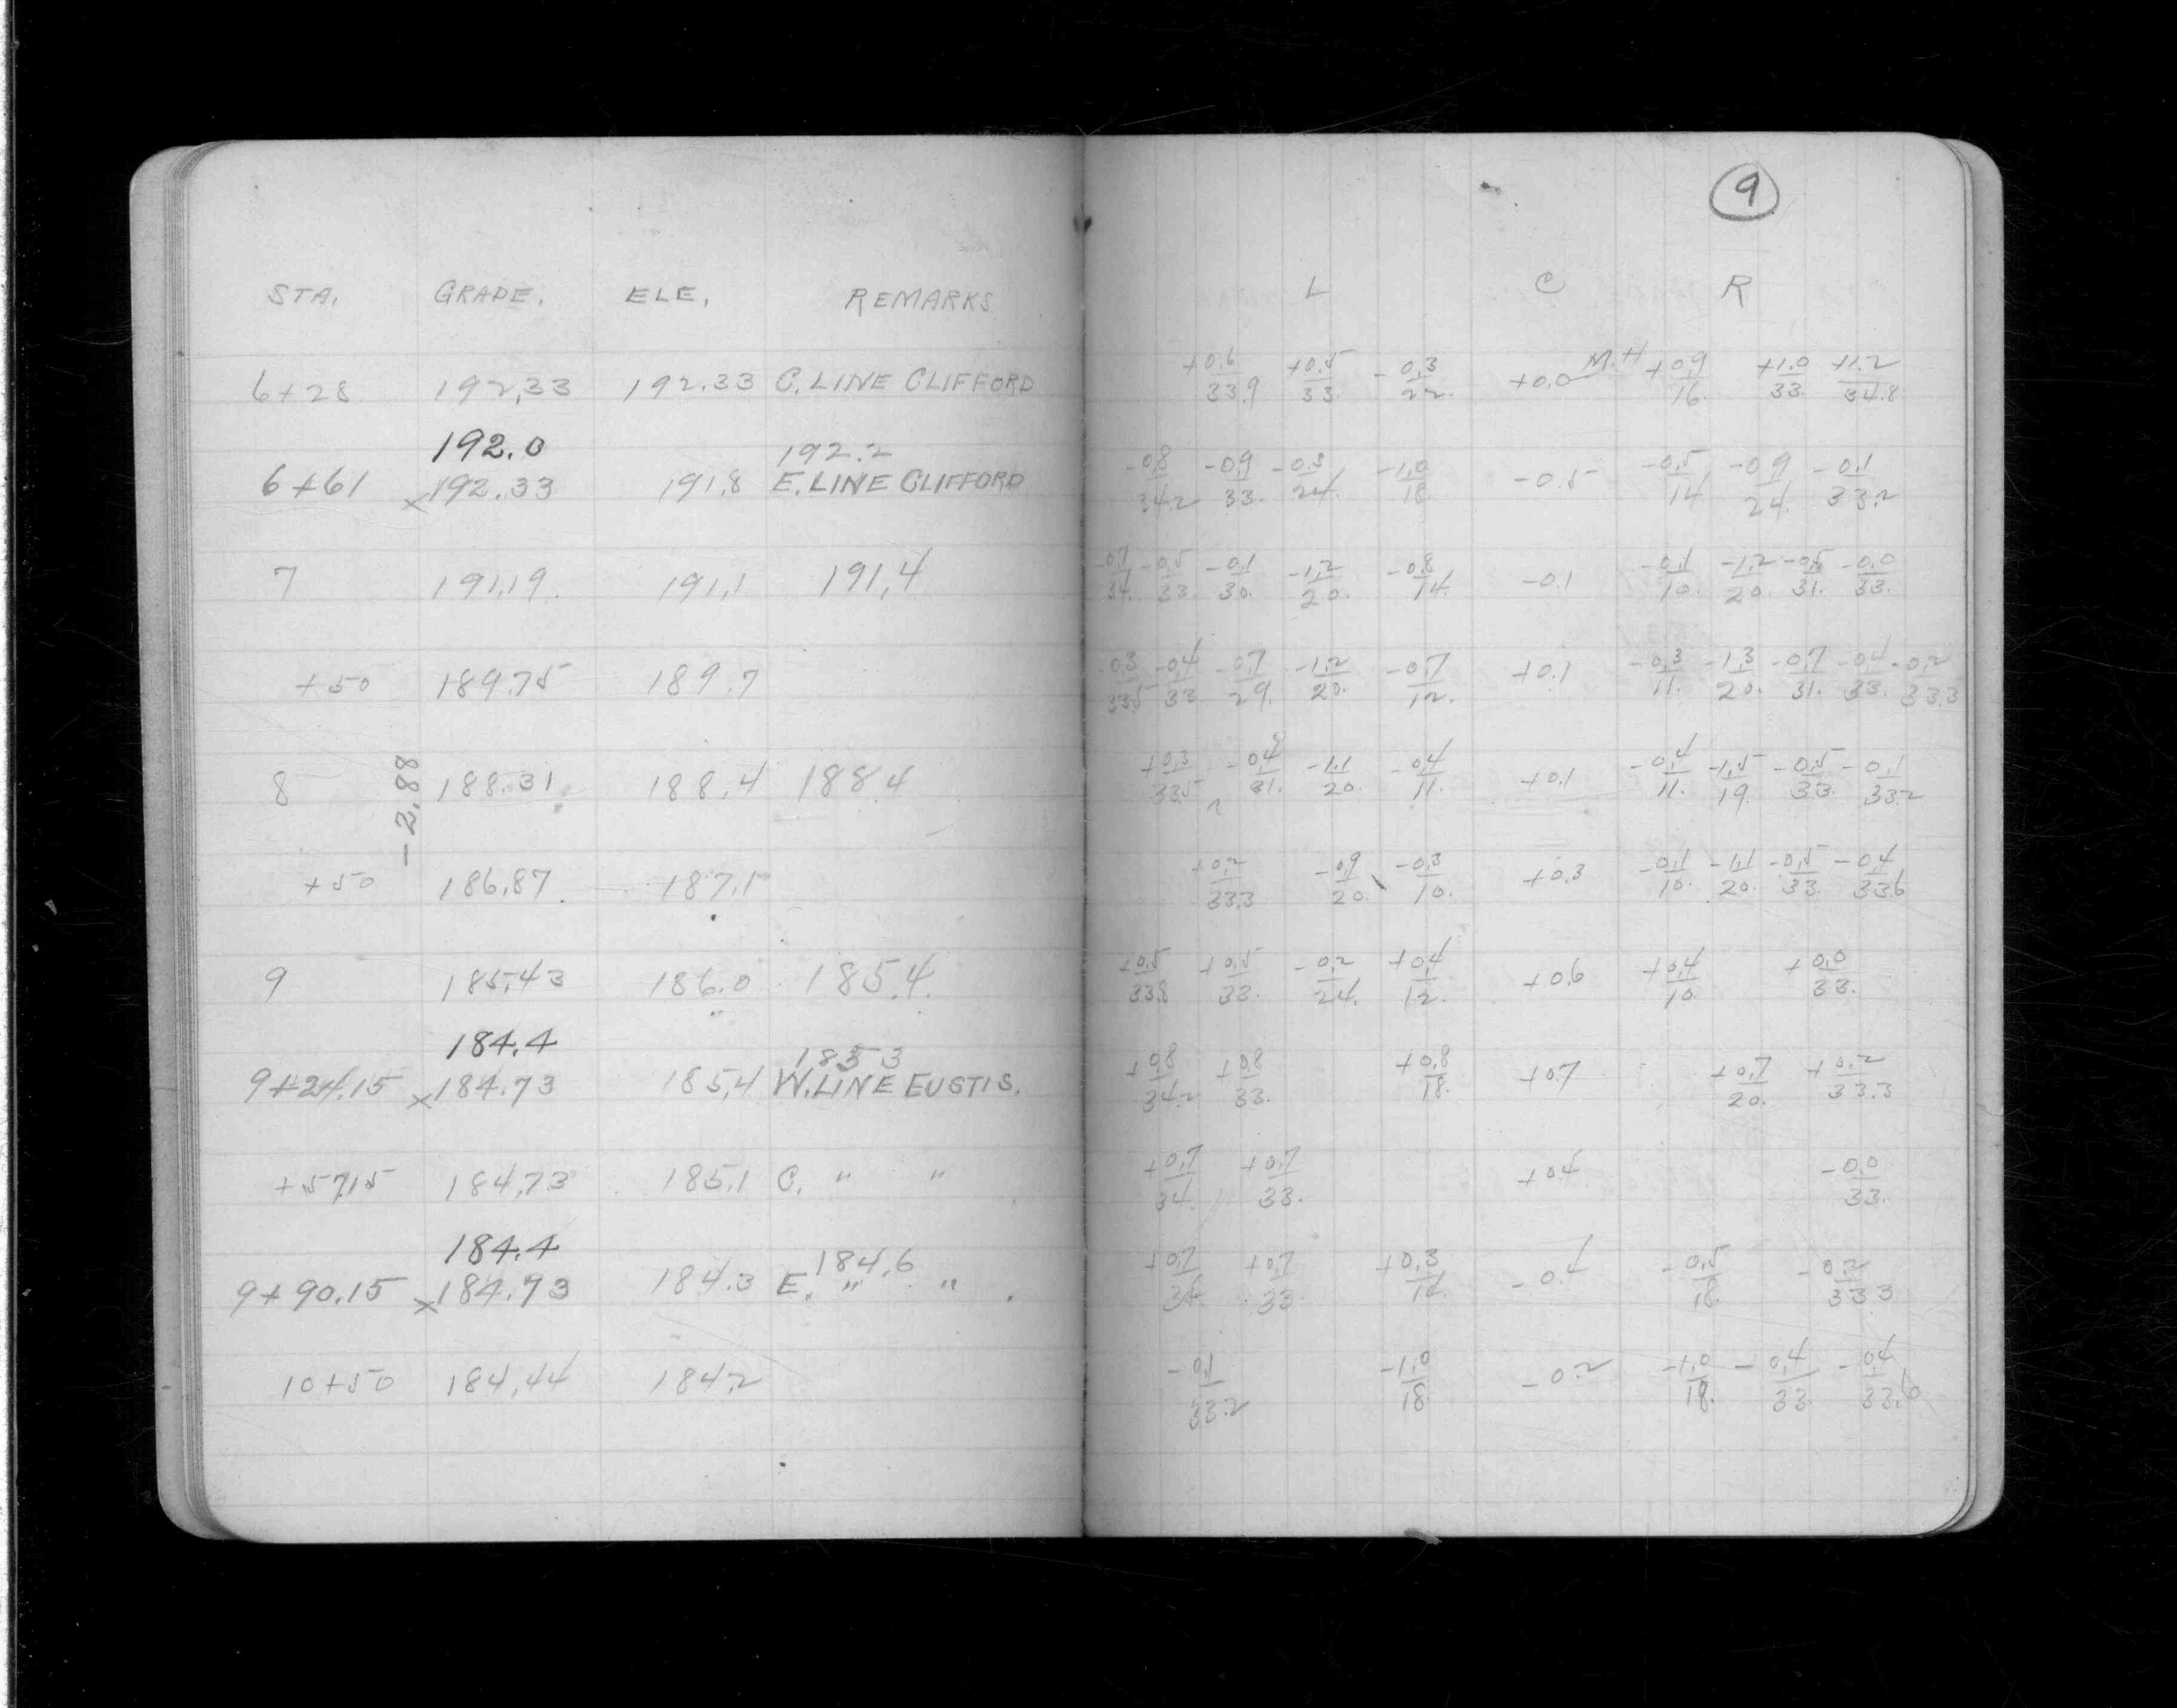 9
STA. GRADE. ELE. REMARKS L C R
6+28 192.33 192.33 C. LINE CLIFFORD +0.6/33.9 +0.5/33. -0.3/22. +0.0 M.H +0.9/16. +1.0/33. +1.2/34.8
192.0 192.2
6+61 x192.33 191.8 E. LINE CLIFFORD -0.8/34.2 -0.9/33. -0.3/24. -1.0/18. -0.5 -0.5/14. -0.9/24. -0.1/33.2
7 191.19. 191.1 191.4 -0.7/34. -0.5/33. -0.1/30. -1.2/20. -0.8/14. -0.1 -0.1/10. -1.2/20. -0.5/31. -0.0/33.
+50 189.75 189.7 -0.3/33.5 -0.4/33 -0.7/29. -1.2/20. -0.7/12. +0.1 -0.3/11. -1.3/20. -0.7/31. -0.4/33. -0.2/33.3
-2.88
8 188.31 188.4 188.4 +0.3/33.5 -0.4/31. -1.1/20. -0.4/11. +0.1 -0.4/11. -1.5/19. -0.5/33. -0.1/33.2
+50 186.87 187.1 +0.2/33.3 -0.9/20 -0.3/10. +0.3 -0.1/10. -1.1/20. -0.5/33. -0.4/33.6
9 185.43 186.0 185.4. +0.5/33.8 +0.5/33. -0.2/24. +0.4/12. +0.6 +0.4/10. +0.0/33.
184.4 185.3
9+24.15 x184.73 185.4 W. LINE EUSTIS. +0.8/34.2 +0.8/33. +0.8/18. +0.7 +0.7/20. +0.2/33.3
+57.15 184.73 185.1 C. " " +0.7/34. +0.7/33. +0.4 -0.0/33.
184.4 184.6
9+90.15 x184.73 184.3 E. " " +0.7/34. +0.7/33. +0.3/14. -0.4 -0.5/18. -0.2/33.3
10+50 184.44 184.2 -0.1/33.2 -1.0/18. -0.2 -1.0/18. -0.4/33. -0.4/33.6